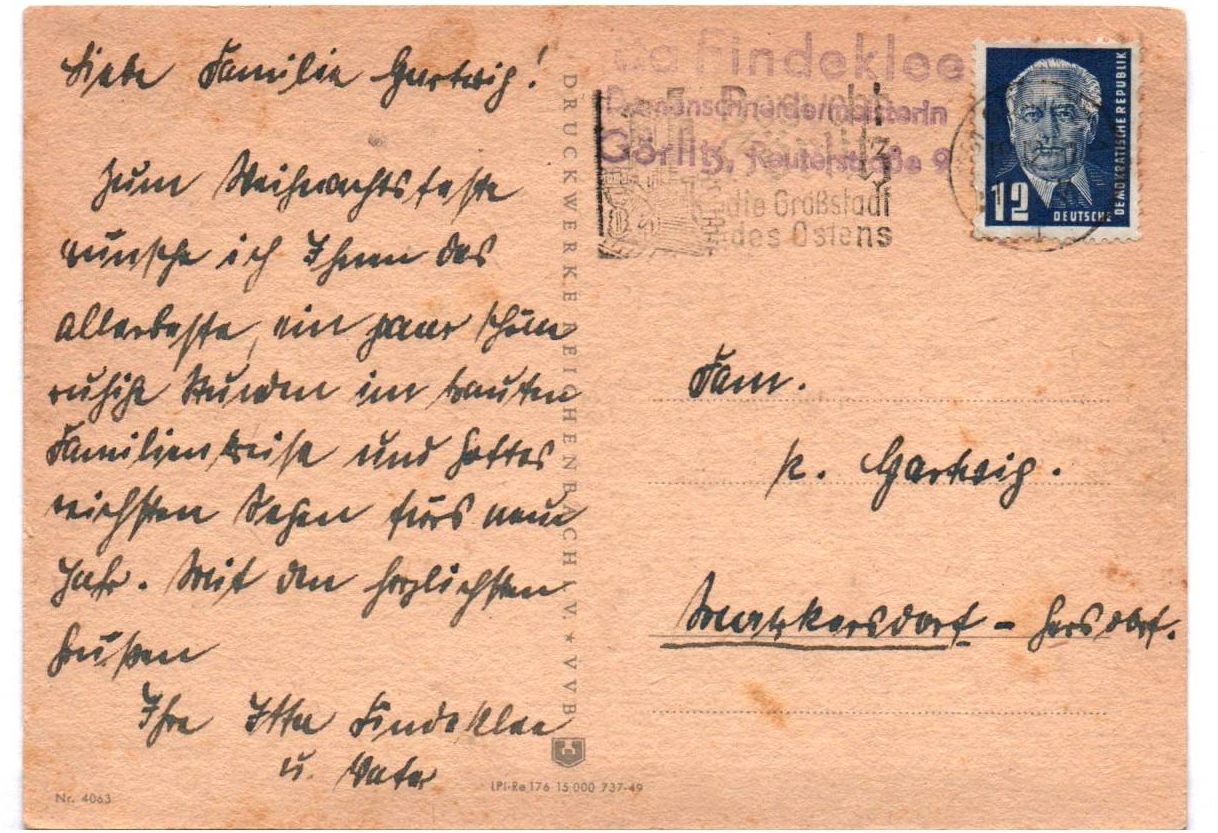 Liebe Familie Gartwig!
Zum Weihnachtsfeste
wünsche ich Ihnen das
allerbeste, ein paar schöne
ruhige Stunden im trauten
Familienkreise und Gottes
reichsten Segen fürs neue
Jahr. Mit den herzlichsten
Grüßen
Ihre Itta Findeklee
u. Vater
Nr. 4063
DRUCKWERKE REICHENBACH I. V. * VVB
LPI-Re 176 15 000 737-49
Findeklee
Damenschneidermeisterin
Görlitz, Reuterstraße 9
die Großstadt
des Ostens
12
DEUTSCHE
DEMOKRATISCHE REPUBLIK
Fam.
K. Gartwig.
Markersdorf - Gersdorf.